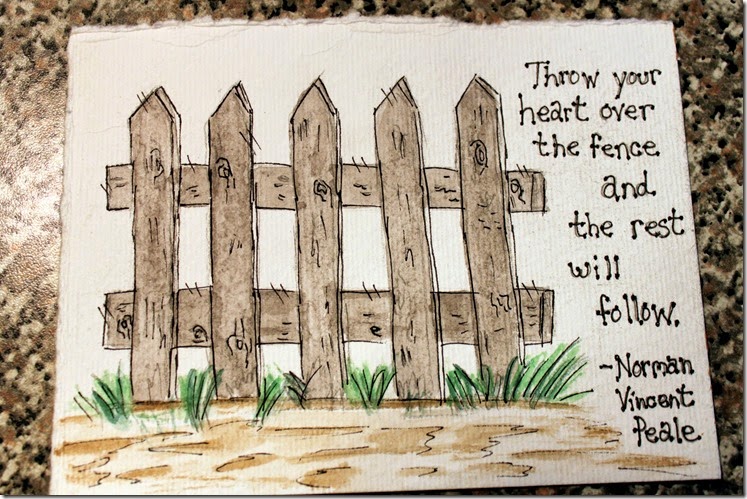 Throw your
heart over
the fence
and
the rest
will
follow.
~Norman
Vincent
Peale